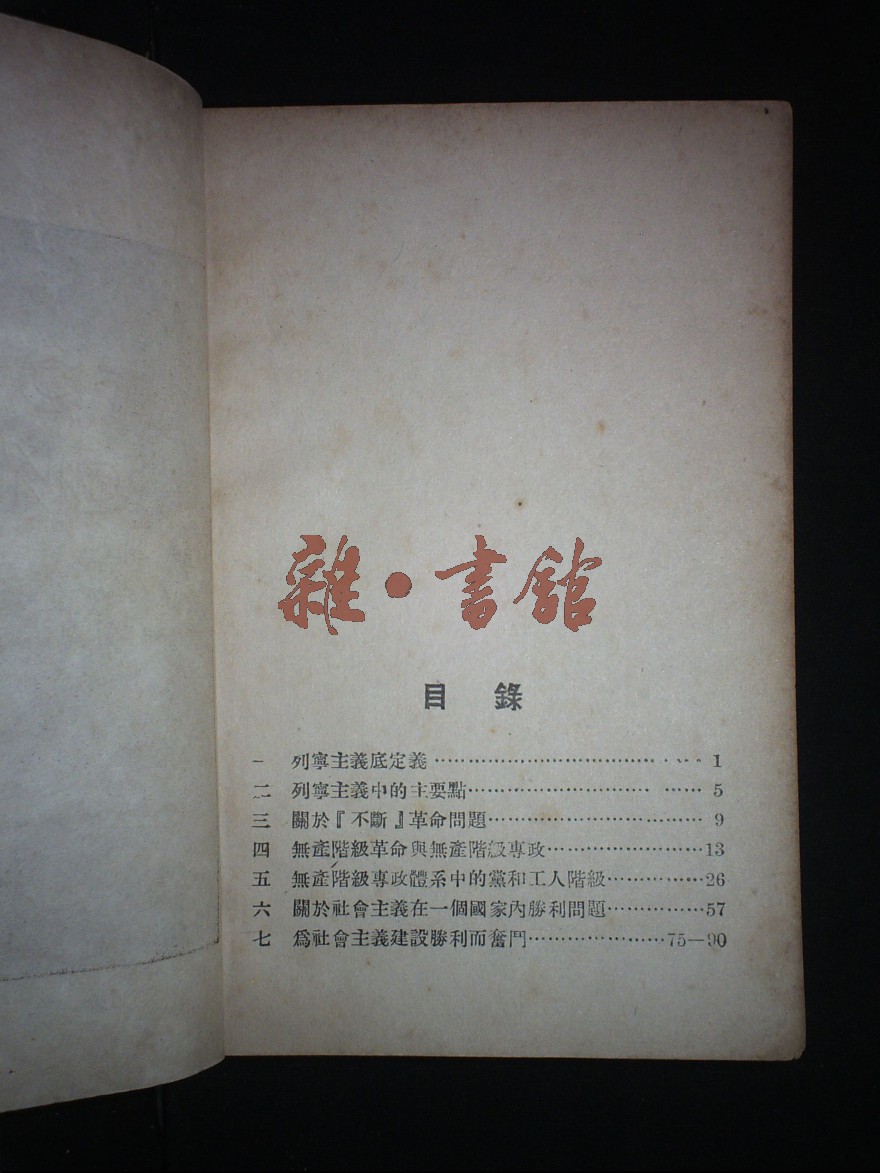 雜•書館
目 錄
一 列寧主義底定義…………………………………1
二 列寧主義中的主要點…………………………………5
三 關於『不斷』革命問題…………………………9
四 無產階級革命與無產階級專政……………………13
五 無產階級專政體系中的黨和工人階級……………26
六 關於社會主義在一個國家內勝利問題……………57
七 爲社會主義建設勝利而奮鬥…………………75—90